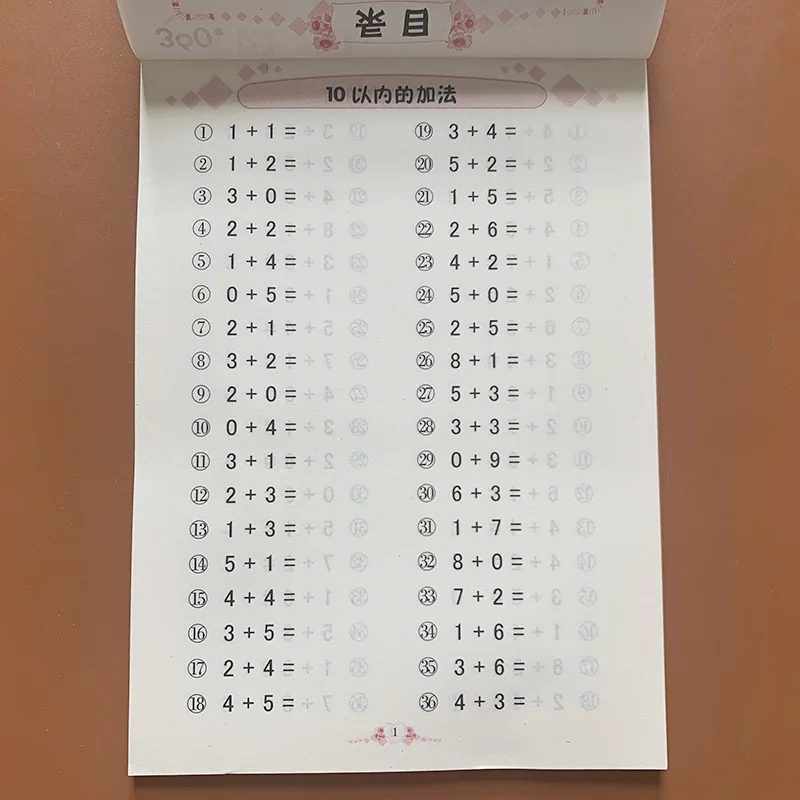 目录
10以内的加法
① 1 + 1 =
② 1 + 2 =
③ 3 + 0 =
④ 2 + 2 =
⑤ 1 + 4 =
⑥ 0 + 5 =
⑦ 2 + 1 =
⑧ 3 + 2 =
⑨ 2 + 0 =
⑩ 0 + 4 =
⑪ 3 + 1 =
⑫ 2 + 3 =
⑬ 1 + 3 =
⑭ 5 + 1 =
⑮ 4 + 4 =
⑯ 3 + 5 =
⑰ 2 + 4 =
⑱ 4 + 5 =
⑲ 3 + 4 =
⑳ 5 + 2 =
㉑ 1 + 5 =
㉒ 2 + 6 =
㉓ 4 + 2 =
㉔ 5 + 0 =
㉕ 2 + 5 =
㉖ 8 + 1 =
㉗ 5 + 3 =
㉘ 3 + 3 =
㉙ 0 + 9 =
㉚ 6 + 3 =
㉛ 1 + 7 =
㉜ 8 + 0 =
㉝ 7 + 2 =
㉞ 1 + 6 =
㉟ 3 + 6 =
㊱ 4 + 3 =
1